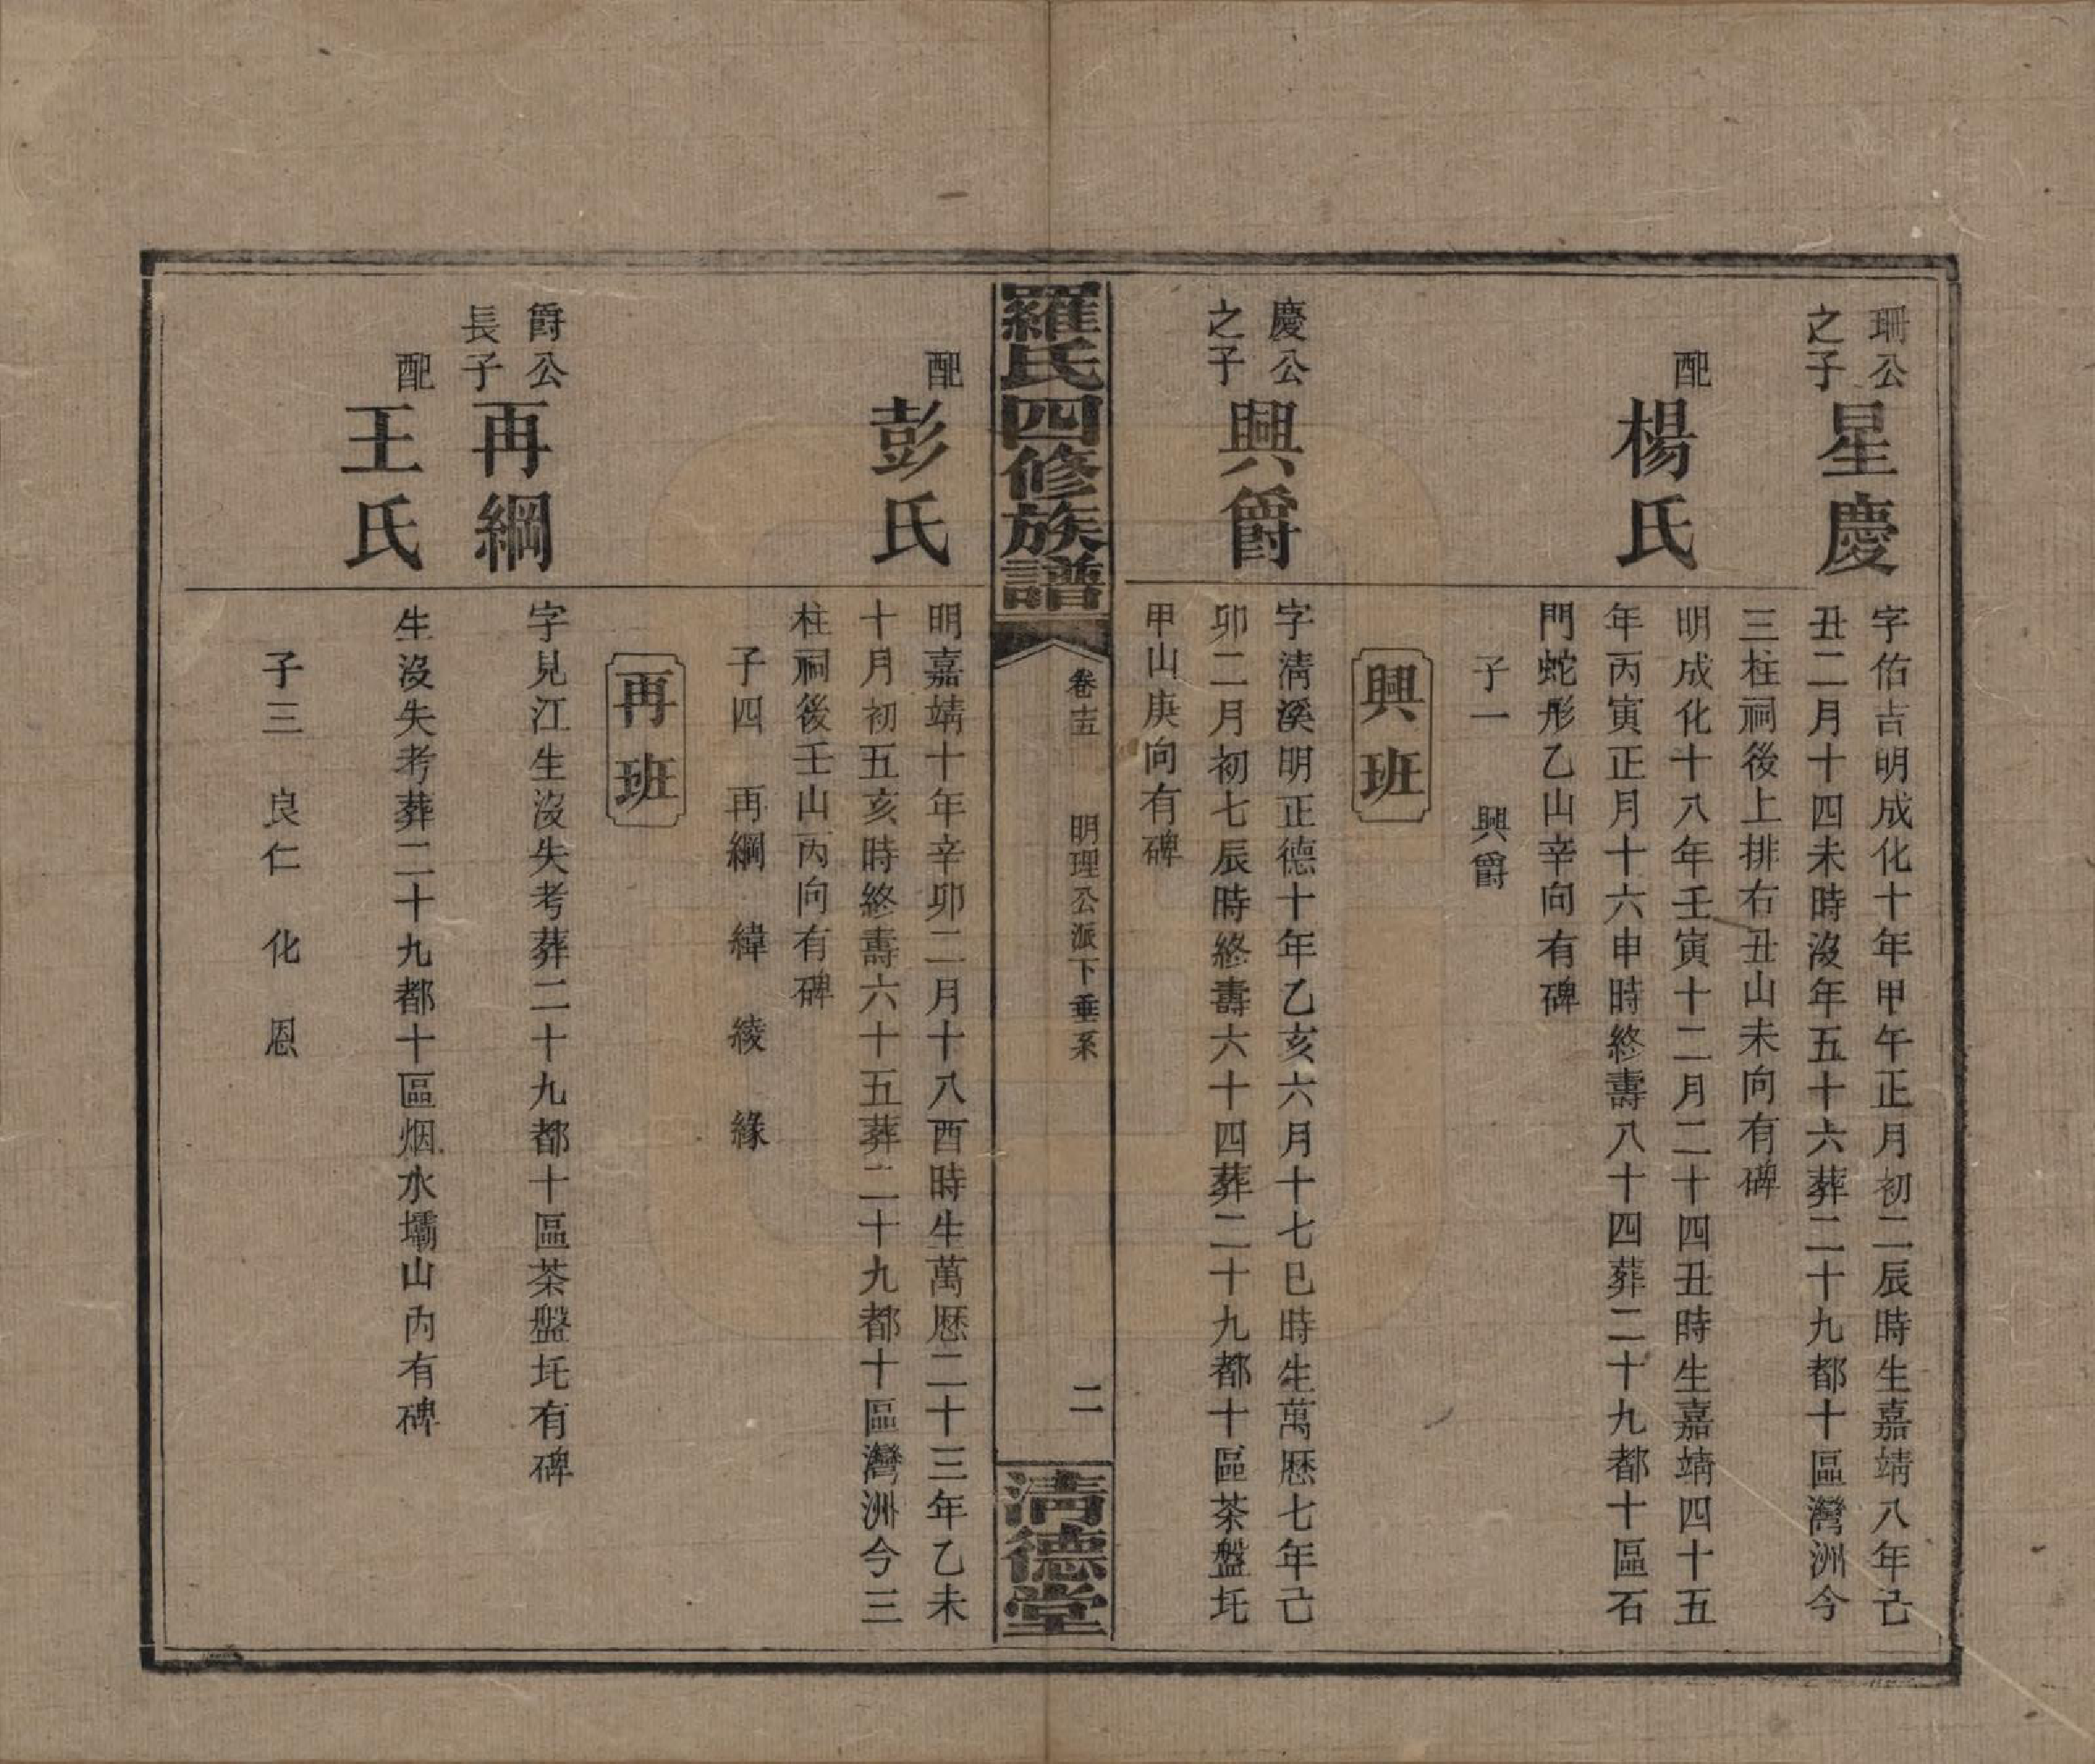 珊公
之子
星慶
字佑吉明成化十年甲午正月初二辰時生嘉靖八年己
丑二月十四未時沒年五十六葬二十九都十區灣洲今
三柱祠後上排右丑山未向有碑
配
楊氏
明成化十八年壬寅十二月二十四丑時生嘉靖四十五
年丙寅正月十六申時終壽八十四葬二十九都十區石
門蛇形乙山辛向有碑
子一 興爵
興班
慶公
之子
興爵
字清溪明正德十年乙亥六月十七巳時生萬歷七年己
卯二月初七辰時終壽六十四葬二十九都十區茶盤圫
甲山庚向有碑
羅氏四修族譜
卷十五 明理公派下垂系
二
清德堂
配
彭氏
明嘉靖十年辛卯二月十八酉時生萬歷二十三年乙未
十月初五亥時終壽六十五葬二十九都十區灣洲今三
柱祠後壬山丙向有碑
子四 再綱 緯 綾 緣
再班
爵公
長子
再綱
字見江生沒失考葬二十九都十區茶盤圫有碑
配
王氏
生沒失考葬二十九都十區烟水壩山內有碑
子三 良仁 化 恩